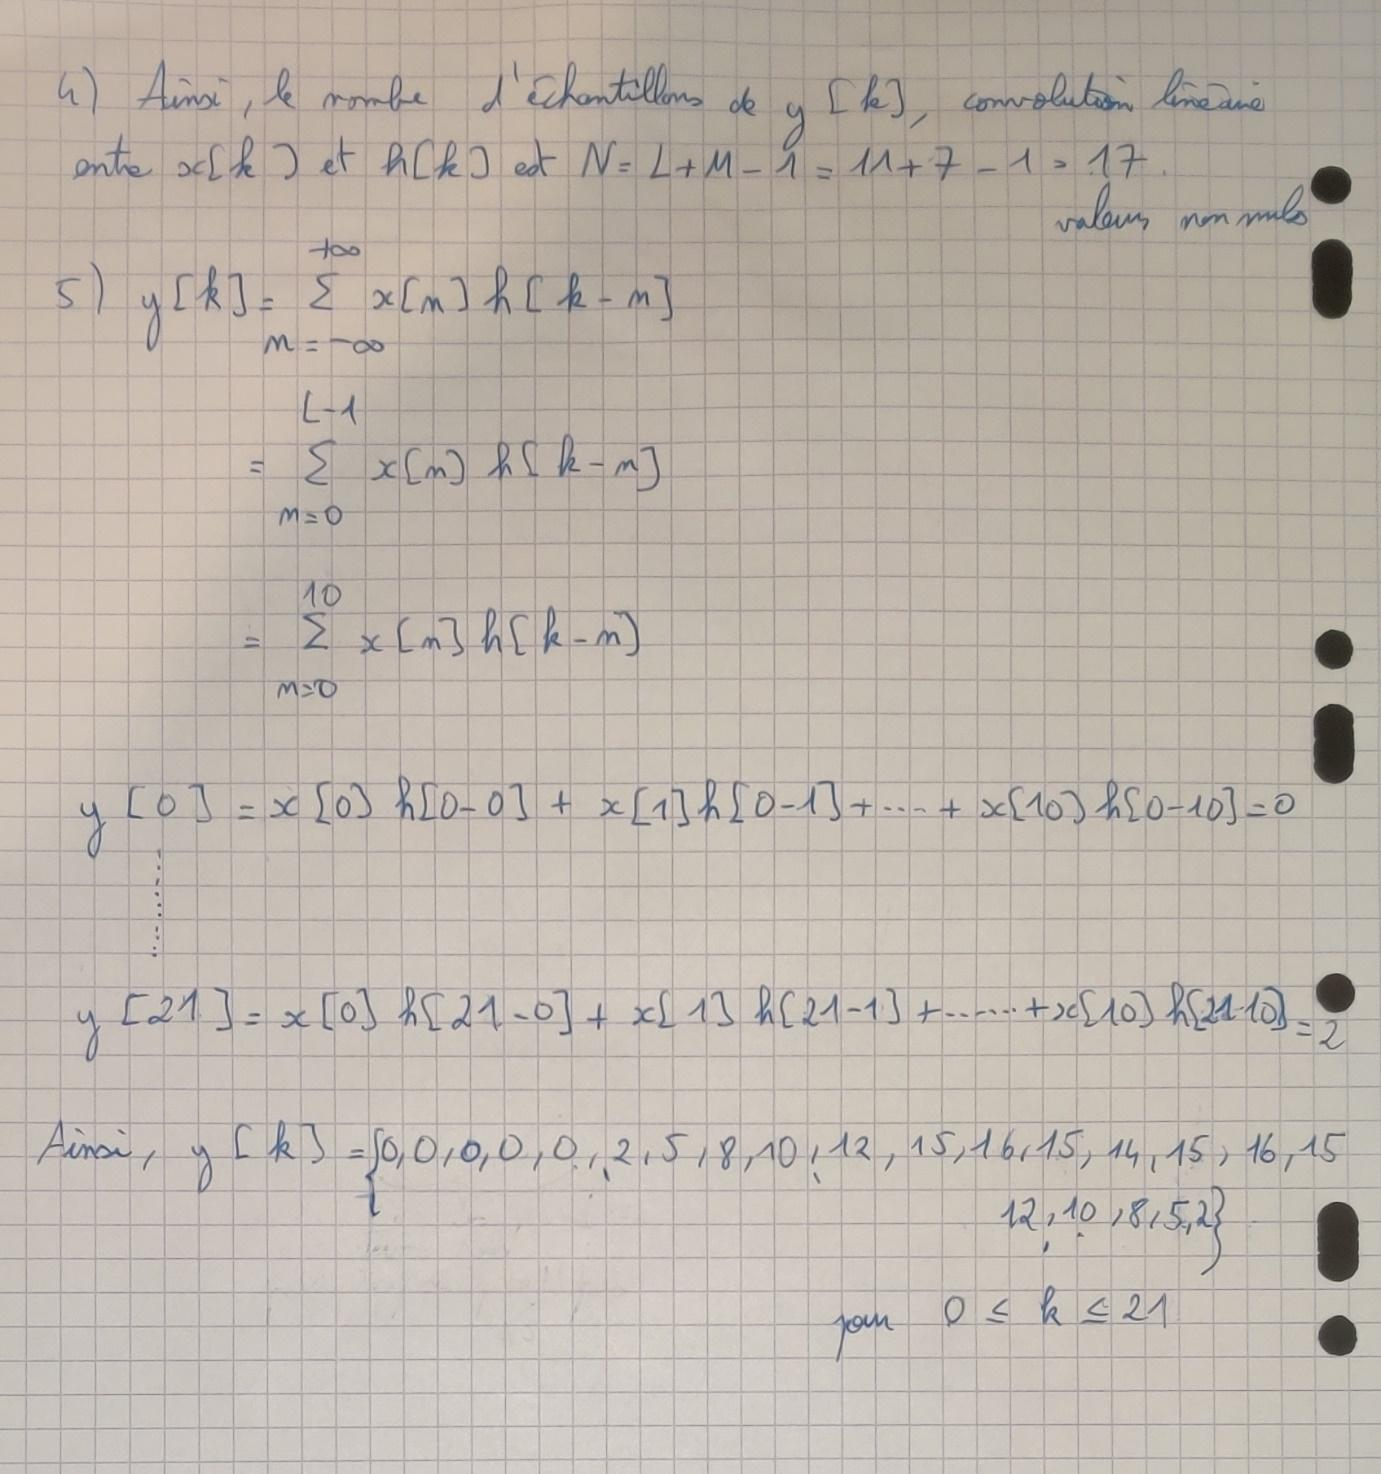 4) Ainsi, le nombre d'échantillons de y[k], convolution linéaire
entre x[k] et h[k] est N = L+M-1 = 11+7-1 = 17.
valeurs non nuls
5) y[k] = Σ x[n] h[k-n]
+∞
n=-∞
L-1
= Σ x[n] h[k-n]
n=0
10
= Σ x[n] h[k-n]
n=0
y[0] = x[0] h[0-0] + x[1] h[0-1] + .... + x[10] h[0-10] = 0
..........
y[21] = x[0] h[21-0] + x[1] h[21-1] + ...... + x[10] h[21-10] = 2
Ainsi, y[k] = {0,0,0,0,0,2,5,8,10,12,15,16,15,14,15,16,15
12,10,8,5,2}
pour 0 ≤ k ≤ 21